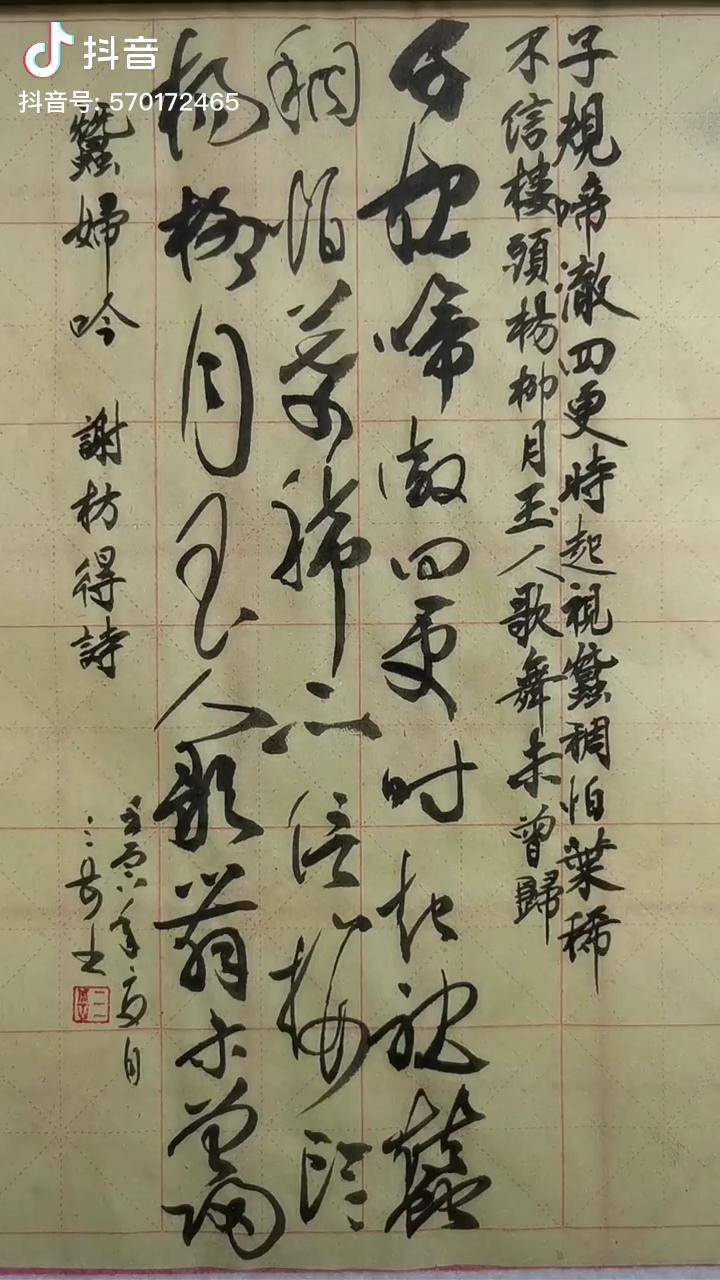 抖音
抖音号: 570172465
子規啼澈四更時起視蠶稠怕葉稀
不信樓頭楊柳月玉人歌舞未曾歸
子規啼澈四更时起視蠶
稠怕葉稀不信樓頭
楊柳月玉人歌舞未曾歸
蠶婦吟 謝枋得詩